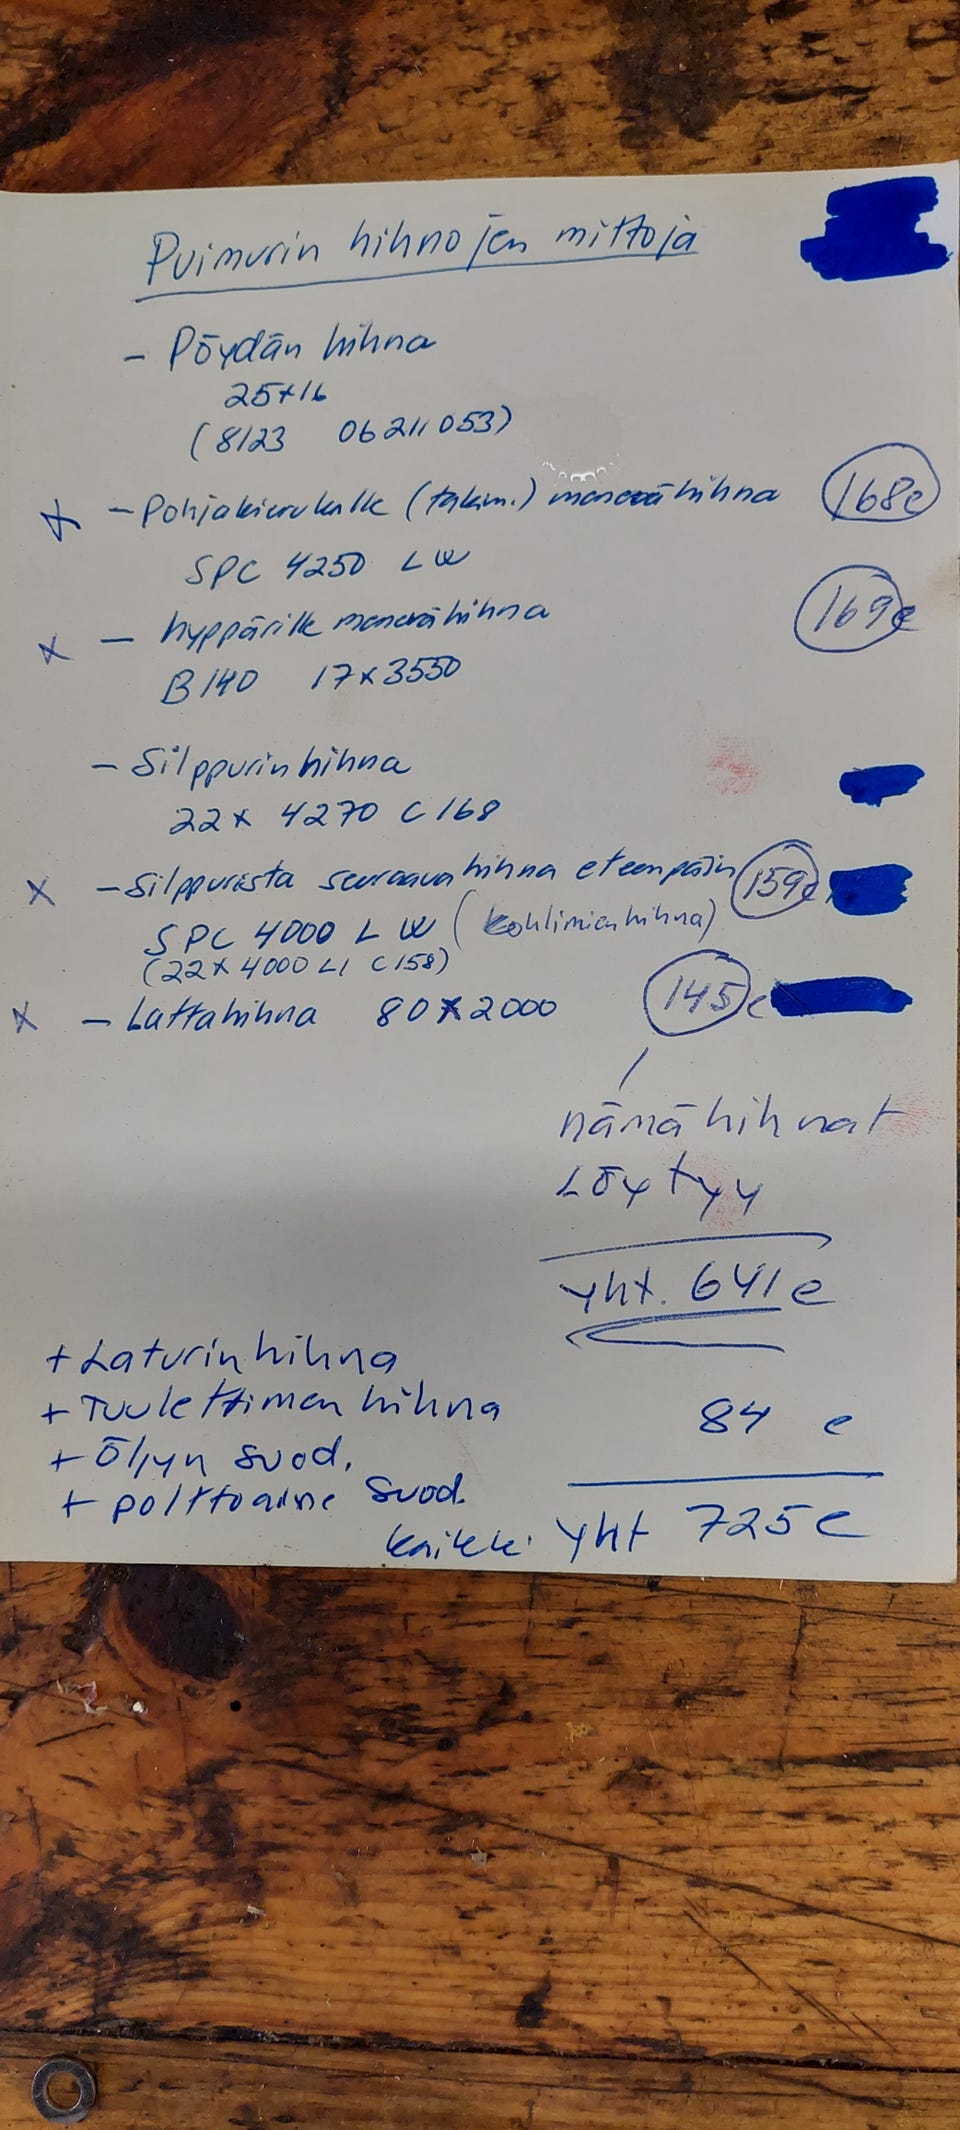 Puimurin hihnojen mittoja
- Pöydän hihna
25x16
(8123 06211053)
x - Pohjakierukalle (takim.) menevä hihna 168e
SPC 4250 LW
x - hyppärille menevä hihna 169e
B 140 17x3550
- Silppurin hihna
22x 4270 C 168
x - Silppurista seuraava hihna eteenpäin 159e
SPC 4000 LW (kohlimien hihna)
(22x4000 LI C158)
x - Lattahihna 80x2000 145e
nämä hihnat
Löytyy
yht. 641e
+ Laturin hihna
+ Tuulettimen hihna 84 e
+ Öljyn suod.
+ polttoaine suod.
kaikki yht 725e